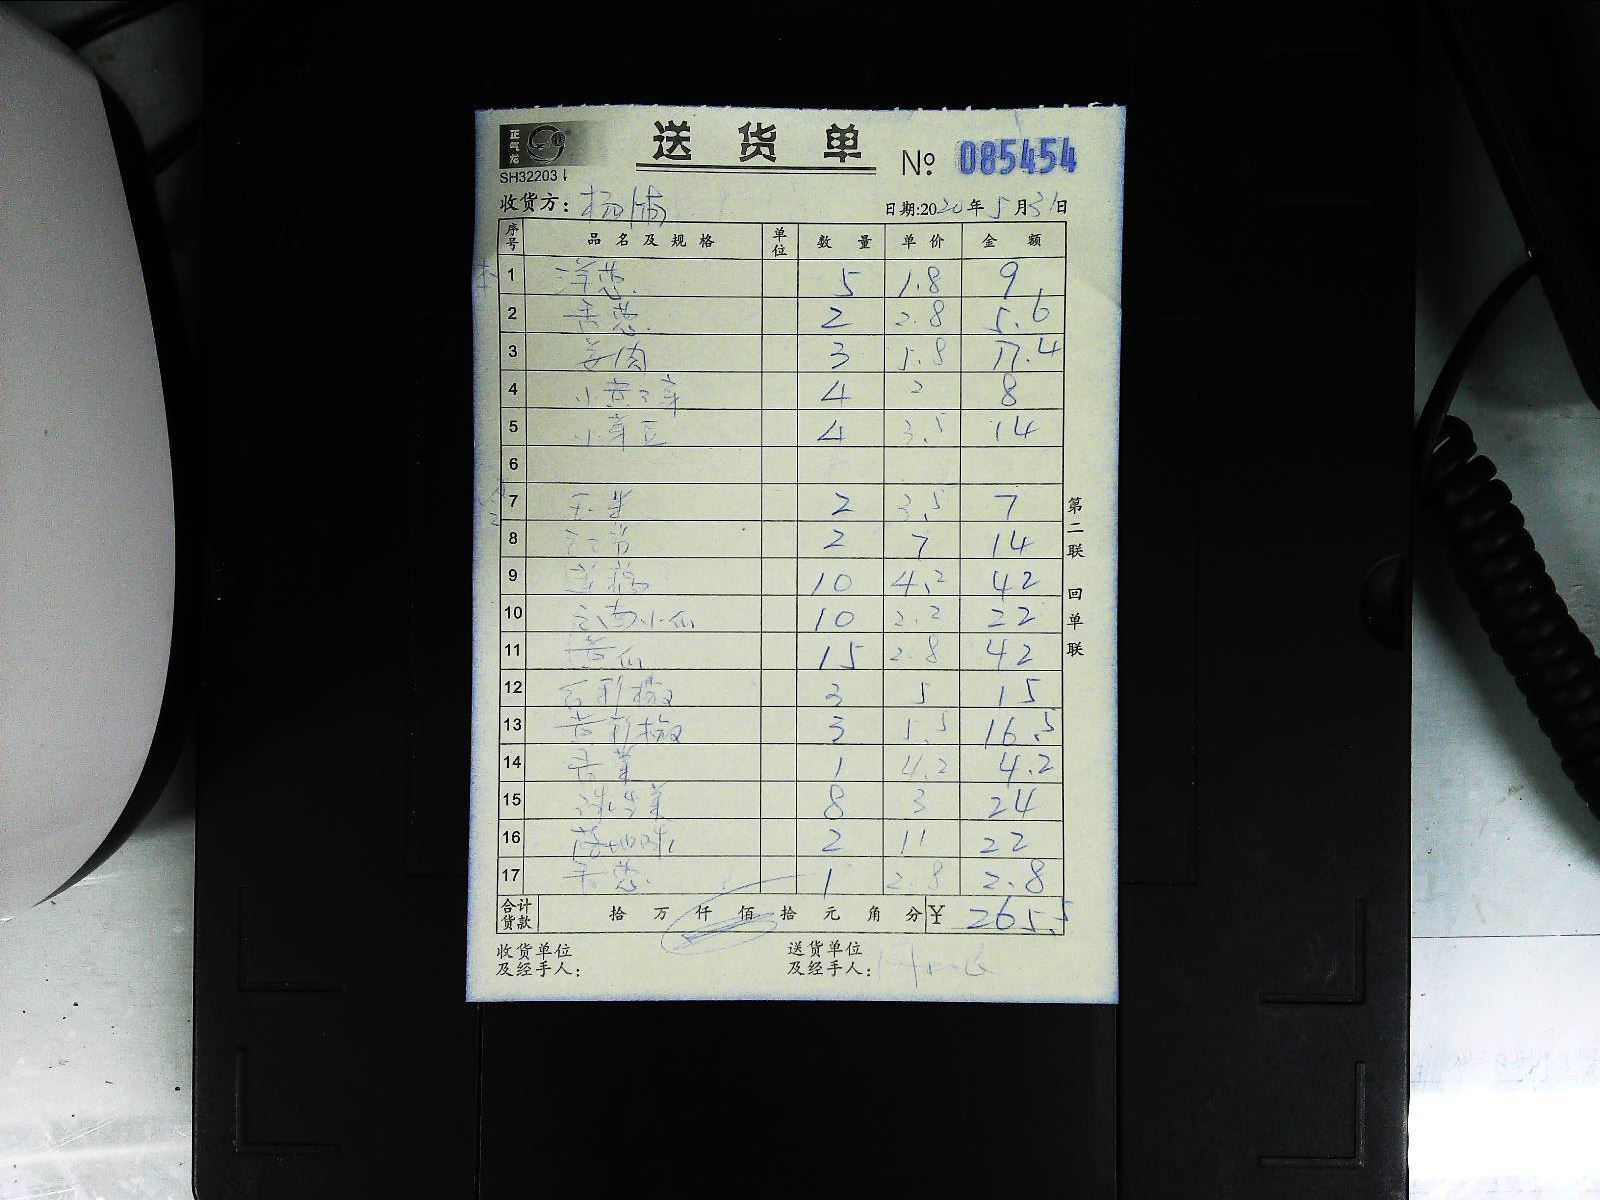 正气龙
送货单
№: 085454
SH32203
收货方: 杨
日期:2020年5月31日
序号 品名及规格 单位 数量 单价 金额
1 洋葱 5 1.8 9
2 香葱 2 2.8 5.6
3 姜肉 3 5.8 17.4
4 4 2 8
5 小芽豆 4 3.5 14
6
7 2 3.5 7
8 2 7 14
9 10 4.2 42
10 云南小瓜 10 2.2 22
11 黄瓜 15 2.8 42
12 3 5 15
13 3 5.5 16.5
14 1 4.2 4.2
15 8 3 24
16 2 11 22
17 香葱 1 2.8 2.8
合计货款 拾 万 仟 佰 拾 元 角 分 ¥ 265.5
收货单位及经手人:
送货单位及经手人:
第二联 回单联